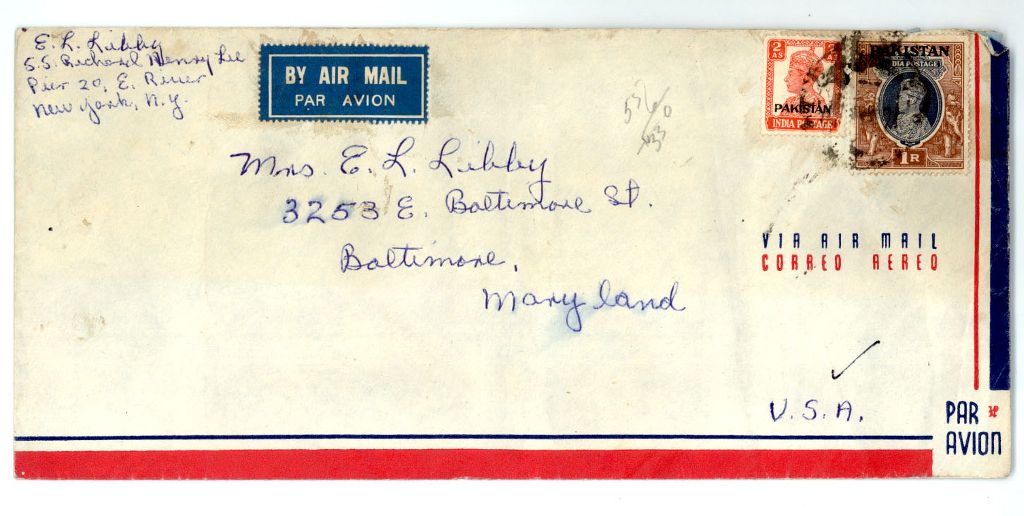 E. L. Libby
S.S. Richard Henry Lee
Pier 20, E. River
New York, N.Y.
BY AIR MAIL
PAR AVION
2 AS
AS
PAKISTAN
INDIA POSTAGE
PAKISTAN
DIA POSTAGE
1 R
Mrs. E. L. Libby
3253 E. Baltimore St.
Baltimore,
Maryland
VIA AIR MAIL
CORREO AEREO
U.S.A.
PAR
AVION